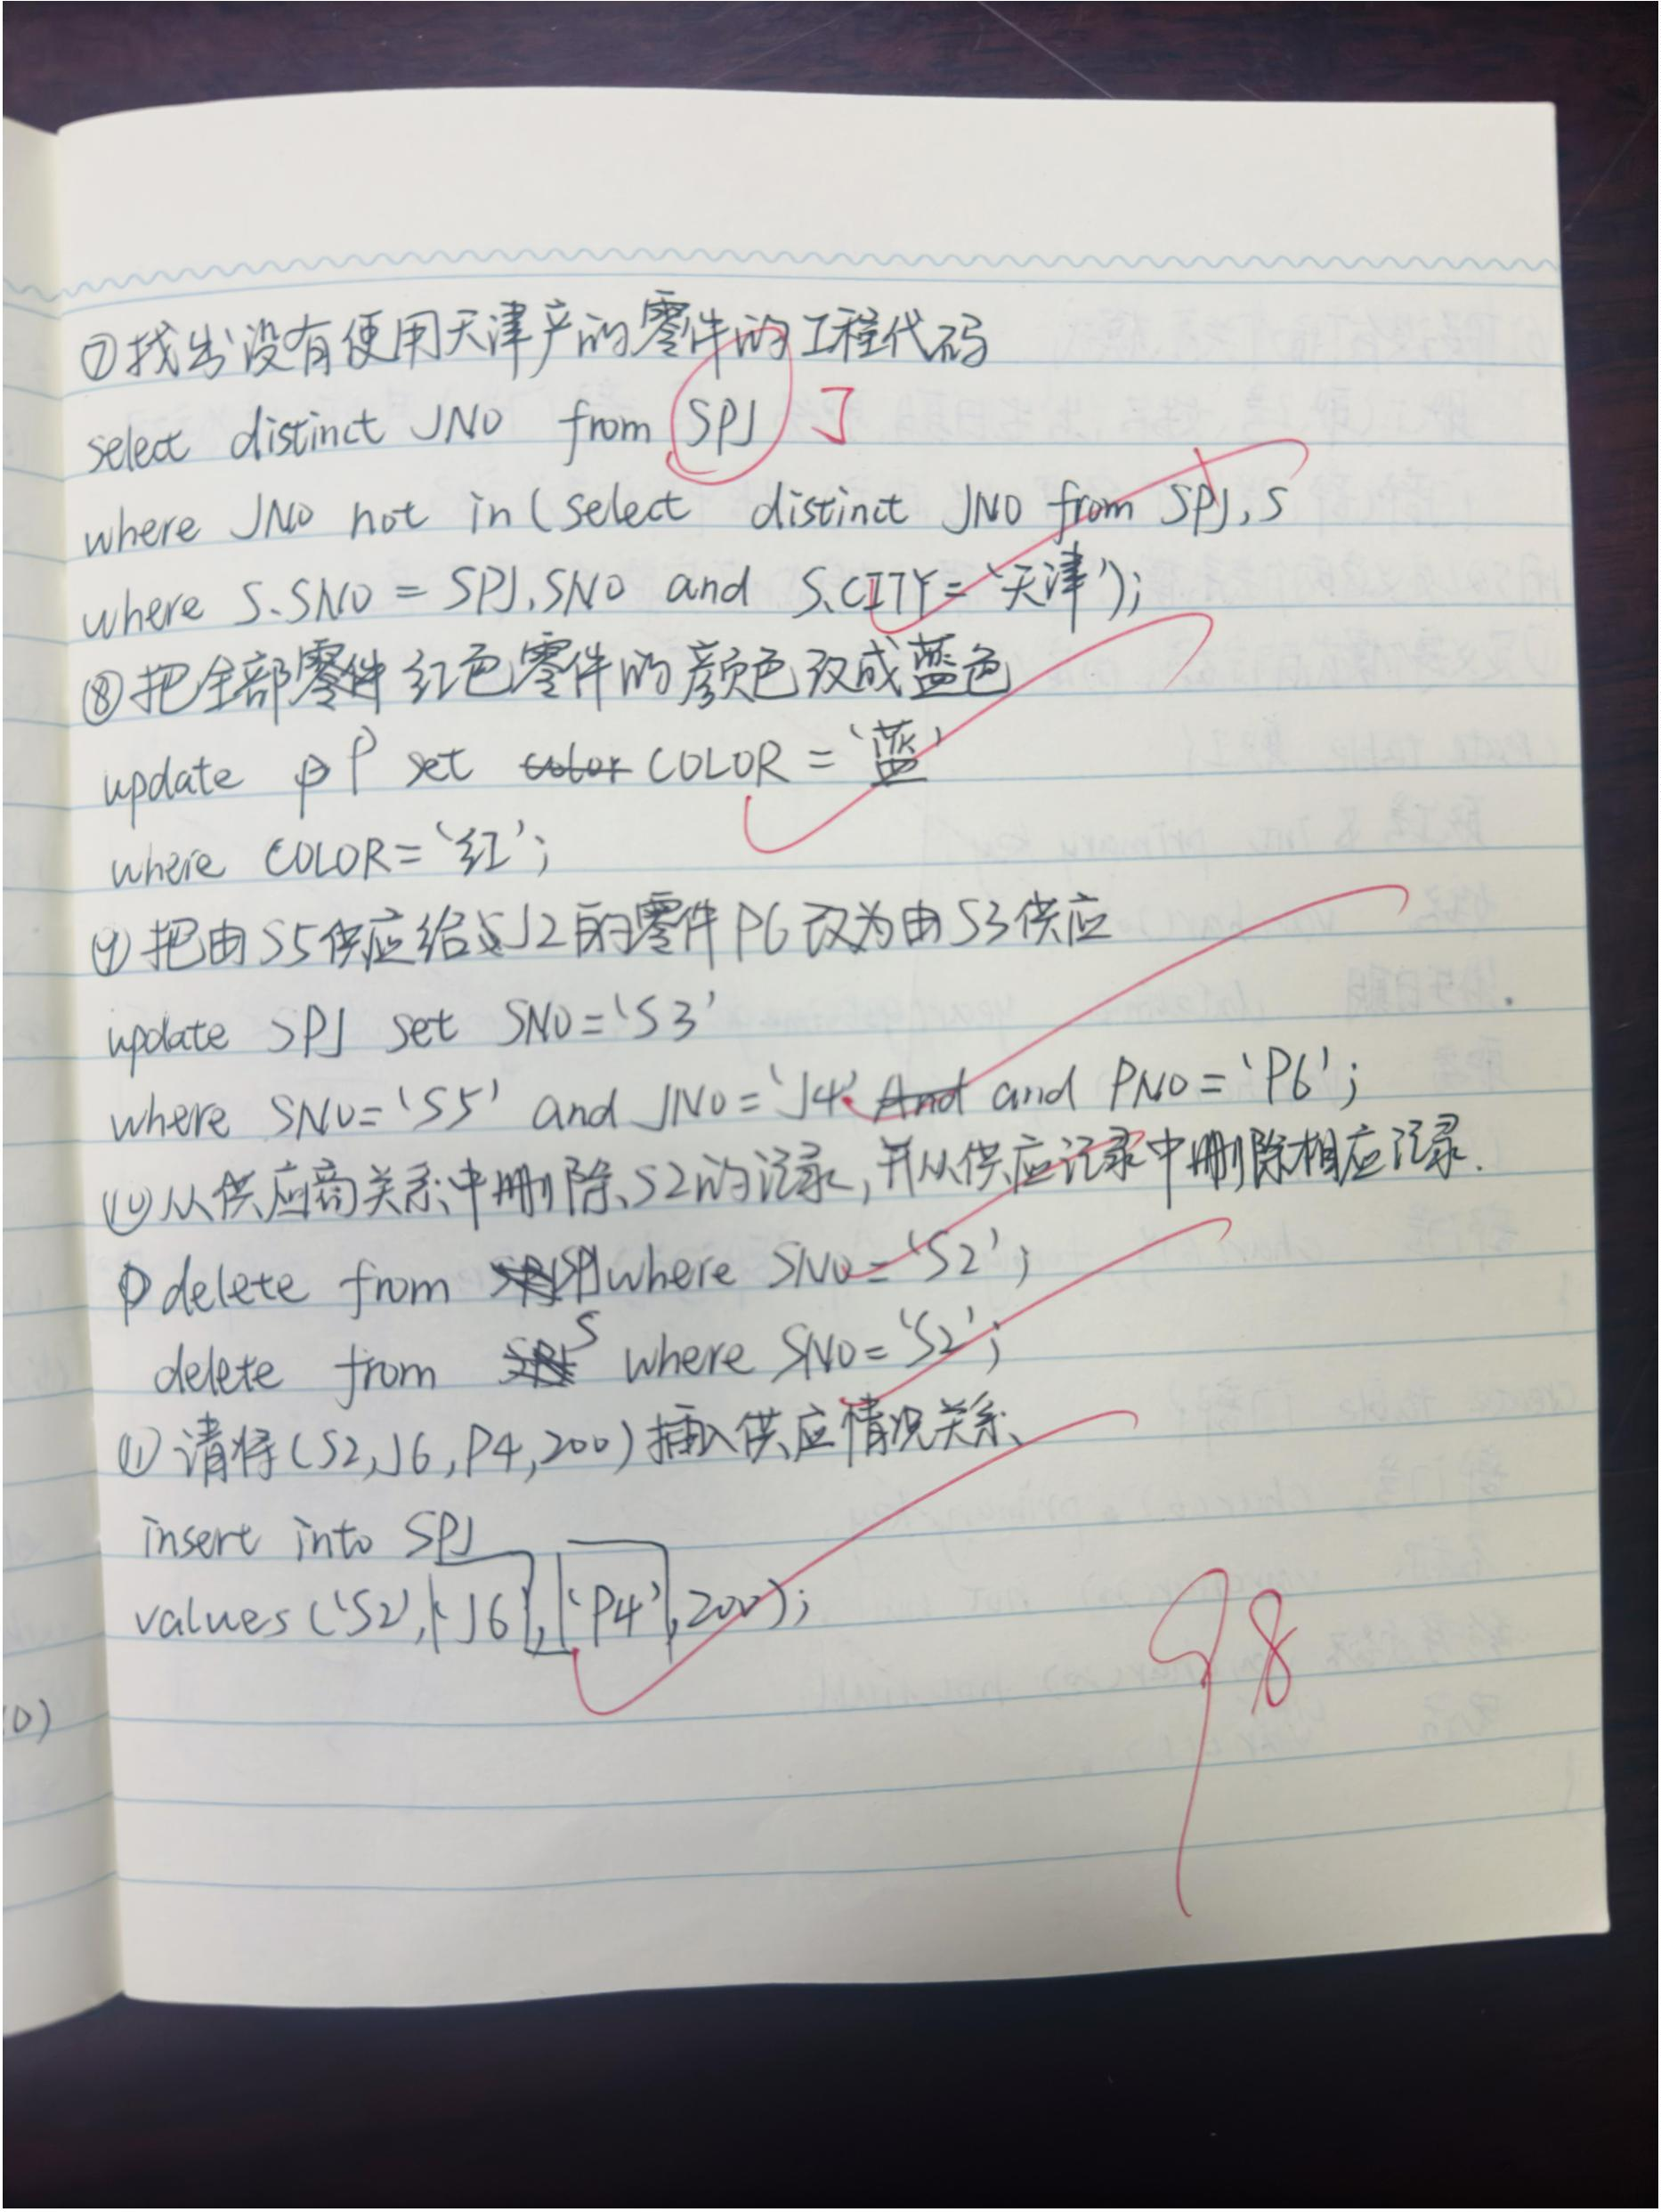 ⑦找出没有使用天津产的零件的工程代码
select distinct JNO from SPJ J
where JNO not in (select distinct JNO from SPJ, S
where S.SNO = SPJ.SNO and S.CITY = '天津');
⑧把全部零件红色零件的颜色改成蓝色
update P set color COLOR = '蓝'
where COLOR = '红';
⑨把由S5供应给J2的零件P6改为由S3供应
update SPJ set SNO = 'S3'
where SNO = 'S5' and JNO = 'J4' And and PNO = 'P6';
⑩从供应商关系中删除S2的记录,并从供应记录中删除相应记录.
delete from SPJ where SNO = 'S2';
delete from S where SNO = 'S2';
⑪请将(S2,J6,P4,200)插入供应情况关系
insert into SPJ
values ('S2', 'J6', 'P4', 200);
98